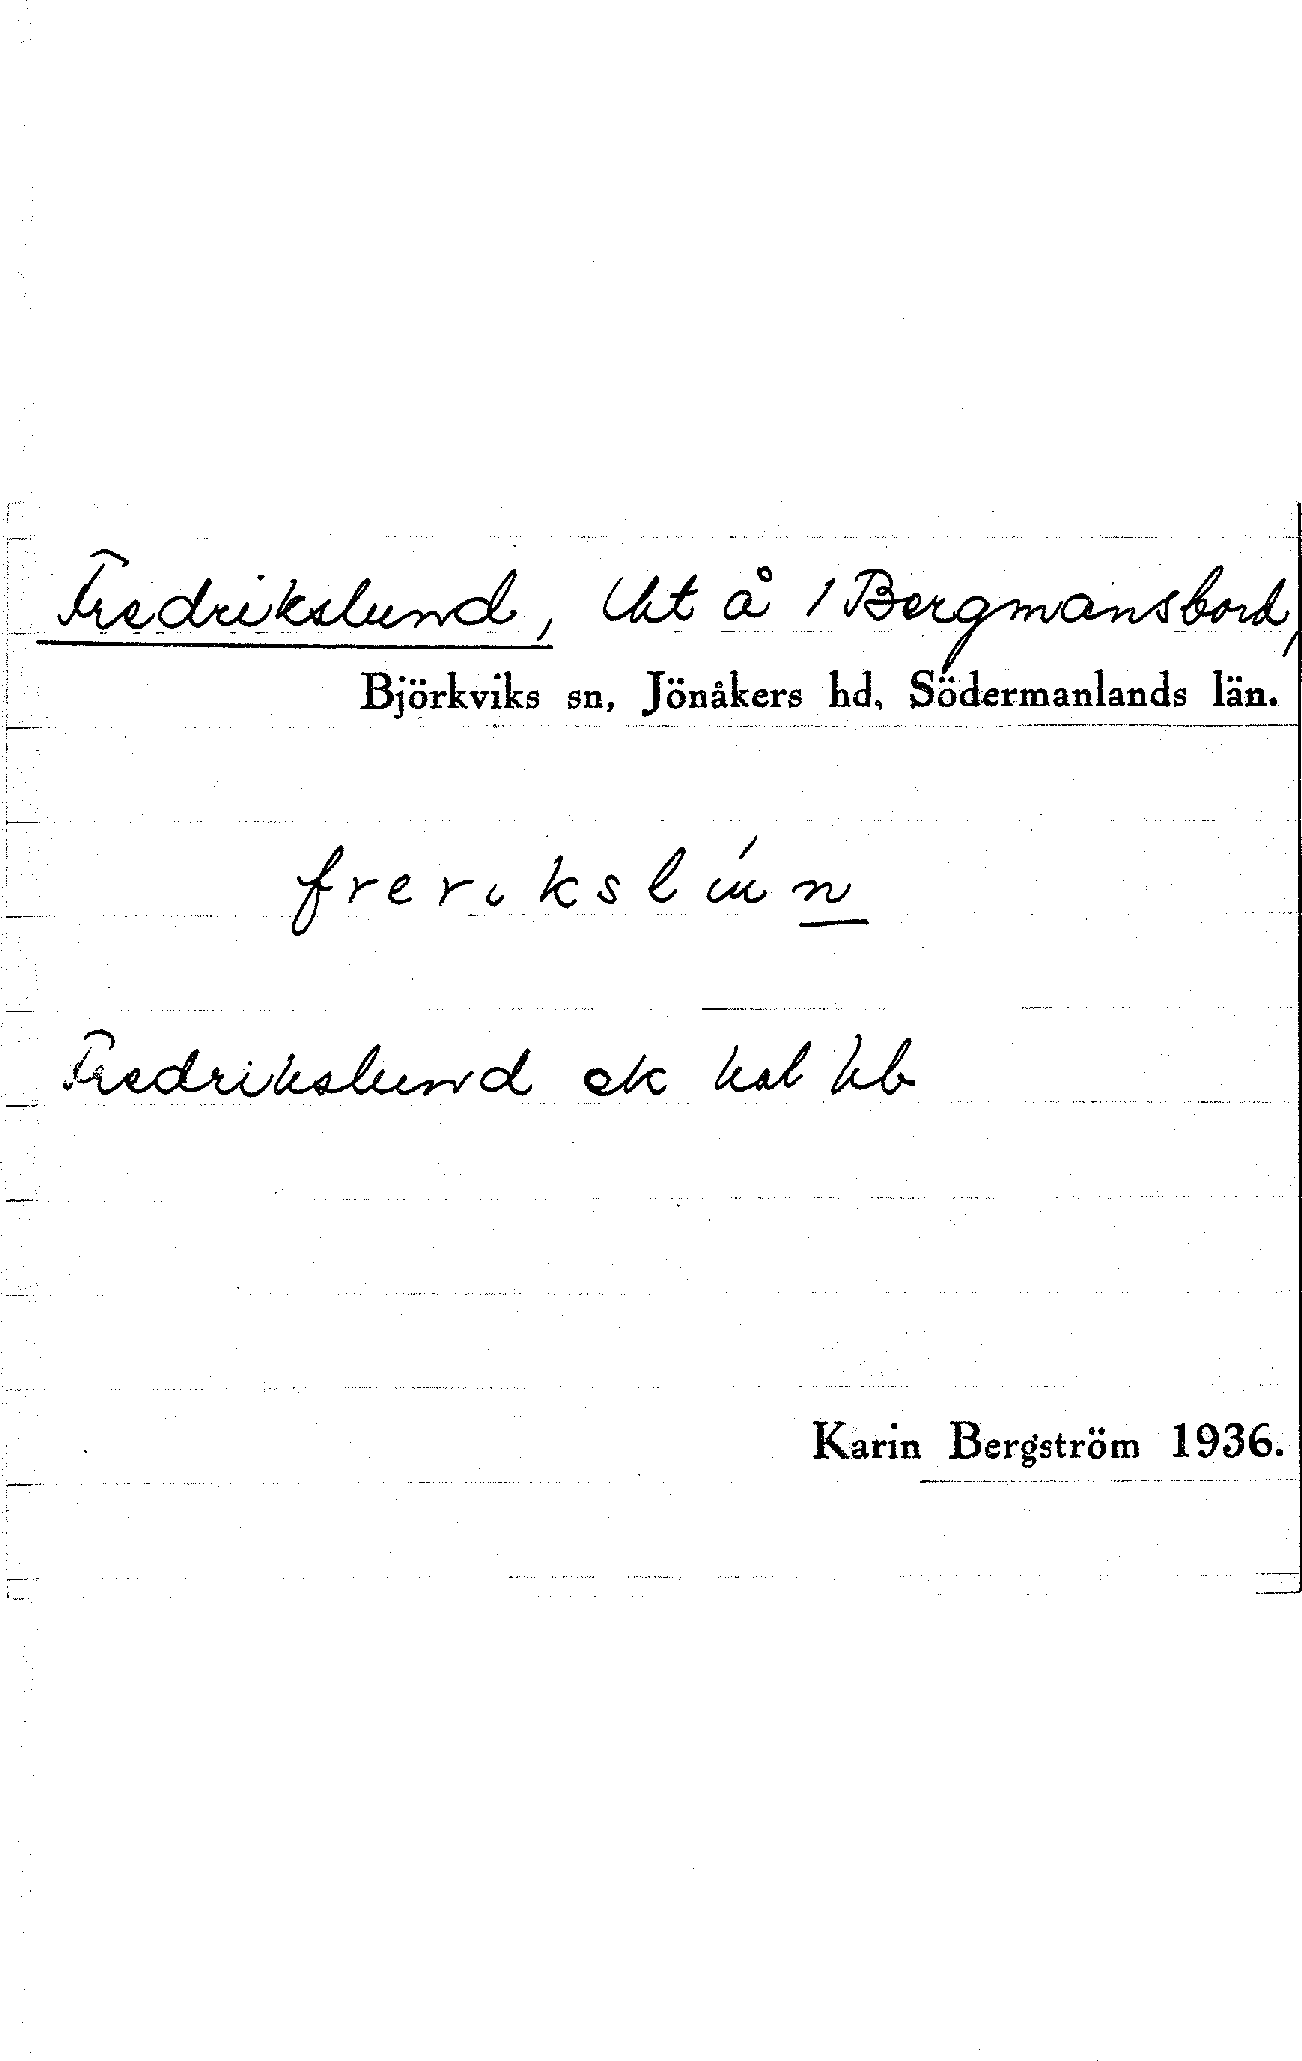 Fredrikslund, Uht å 1 Bergmansbord,
Björkviks sn, Jönåkers hd, Södermanlands län.
frerikslún
Fredrikslund ek kal hb
Karin Bergström 1936.